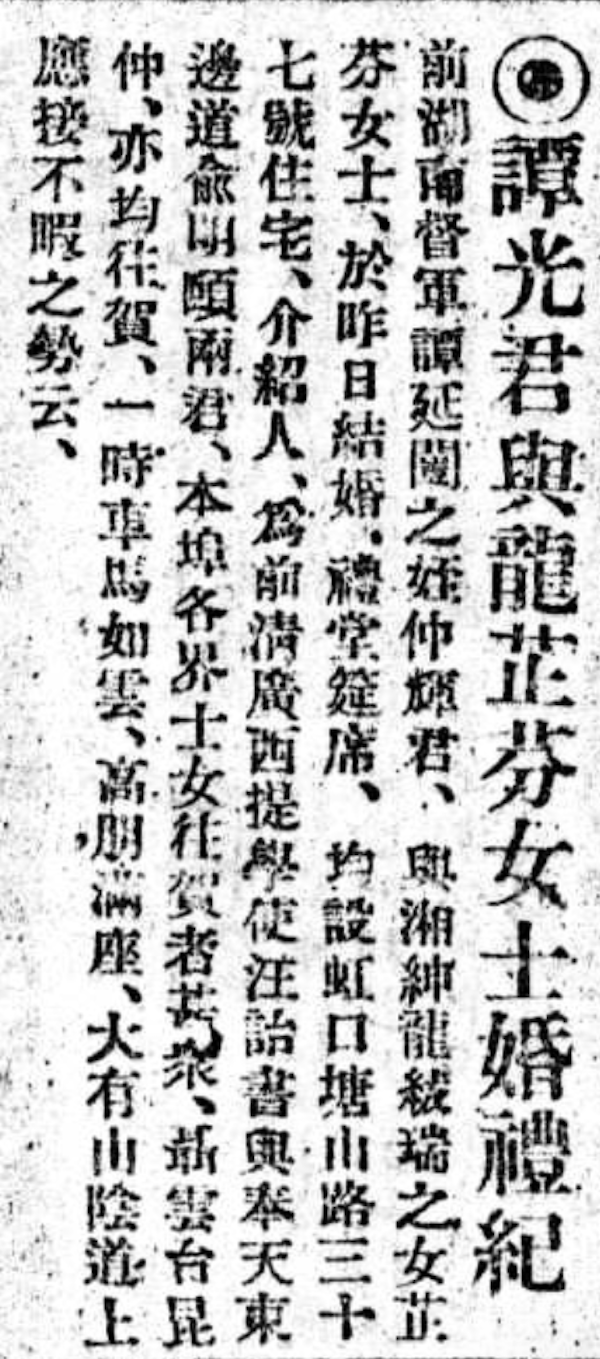 ◉譚光君與龍芷芬女士婚禮紀
前湖南督軍譚延闓之姪仲輝君、與湘紳龍紱瑞之女芷
芬女士、於昨日結婚、禮堂筵席、均設虹口塘山路三十
七號住宅、介紹人、爲前清廣西提學使汪詒書與奉天東
邊道俞明頤兩君、本埠各界士女往賀者甚衆、聶雲台昆
仲、亦均往賀、一時車馬如雲、高朋滿座、大有山陰道上
應接不暇之勢云、